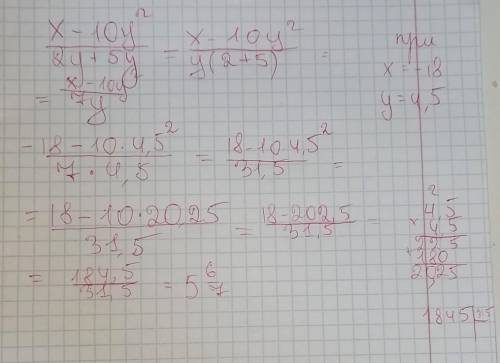 x - 10y² / 2y + 5y = x - 10y² / y(2+5) =
= x - 10y² / 7y
при
x = -18
y = 4,5
-18 - 10·4,5² / 7·4,5 = 18 - 10·4,5² / 31,5 =
= 18 - 10·20,25 / 31,5 = 18 - 202,5 / 31,5 =
= 184,5 / 31,5 = 5 6/7
2
4,5
4,5
225
+180
2025
1845